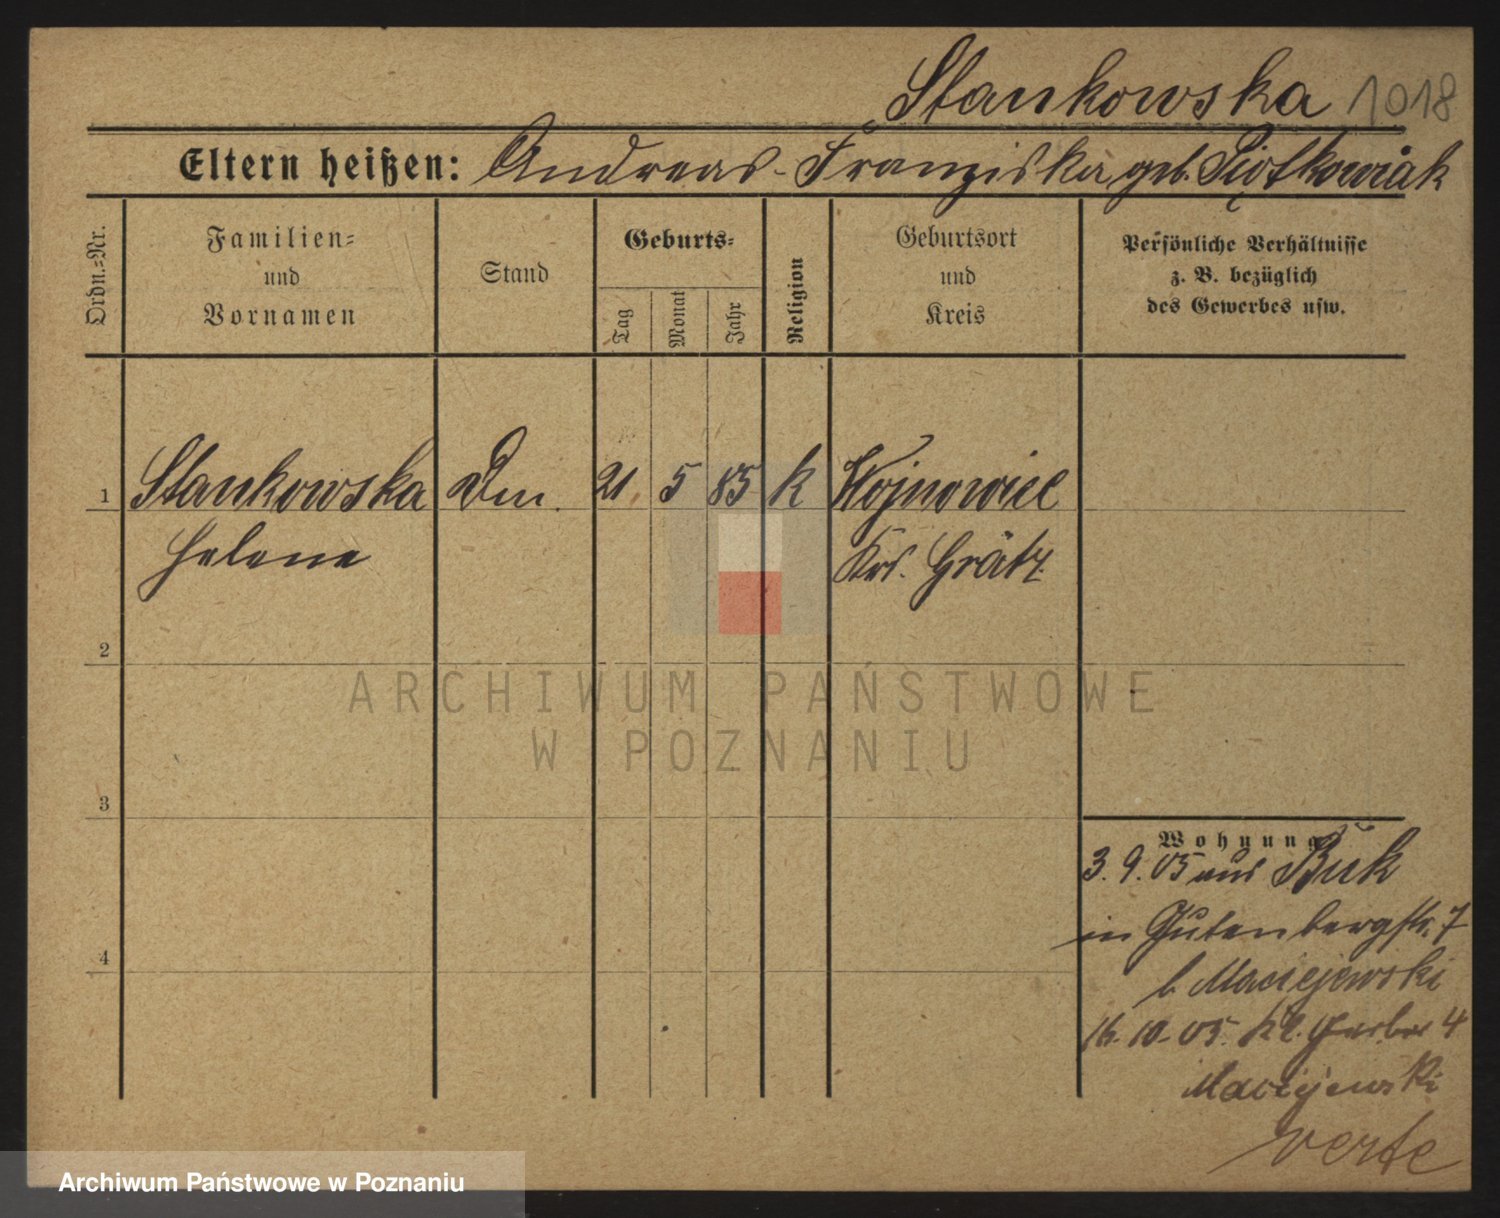 Stankowska 1018
Eltern heißen: Andreas - Franziska geb. Piotkowiak
Ordn.=Nr.
Familien=
und
Vornamen
Stand
Geburts=
Tag
Monat
Jahr
Religion
Geburtsort
und
Kreis
Persönliche Verhältnisse
z. B. bezüglich
des Gewerbes usw.
1 Stankowska 21 5 85 k Wojnowice
Helene Krs. Grätz
2
ARCHIWUM PAŃSTWOWE
W POZNANIU
3
Wohnung
3. 9. 05 aus Buk
in Gutenbergstr. 7
b Maciejewski
4
16. 10. 05. Kl. Gerber 4
Maciejewski
verte
Archiwum Państwowe w Poznaniu